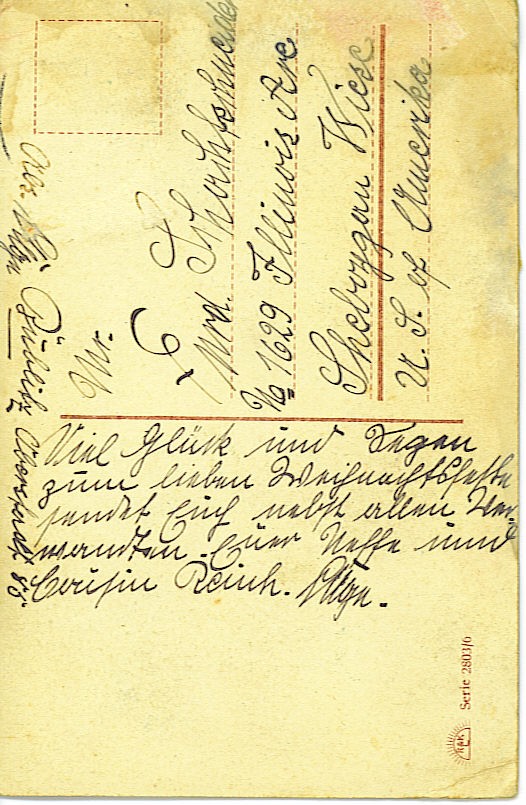 Mr.
Mrd.
No 1629 Illinois Ave
Sheboygan Wisc
U. S. of Amerika
Viel Glück und Segen
zum lieben Weihnachtsfeste
sendet Euch nebst allen Ver-
wandten. Euer Neffe und
Cousin Reinh.
Serie 2803/6